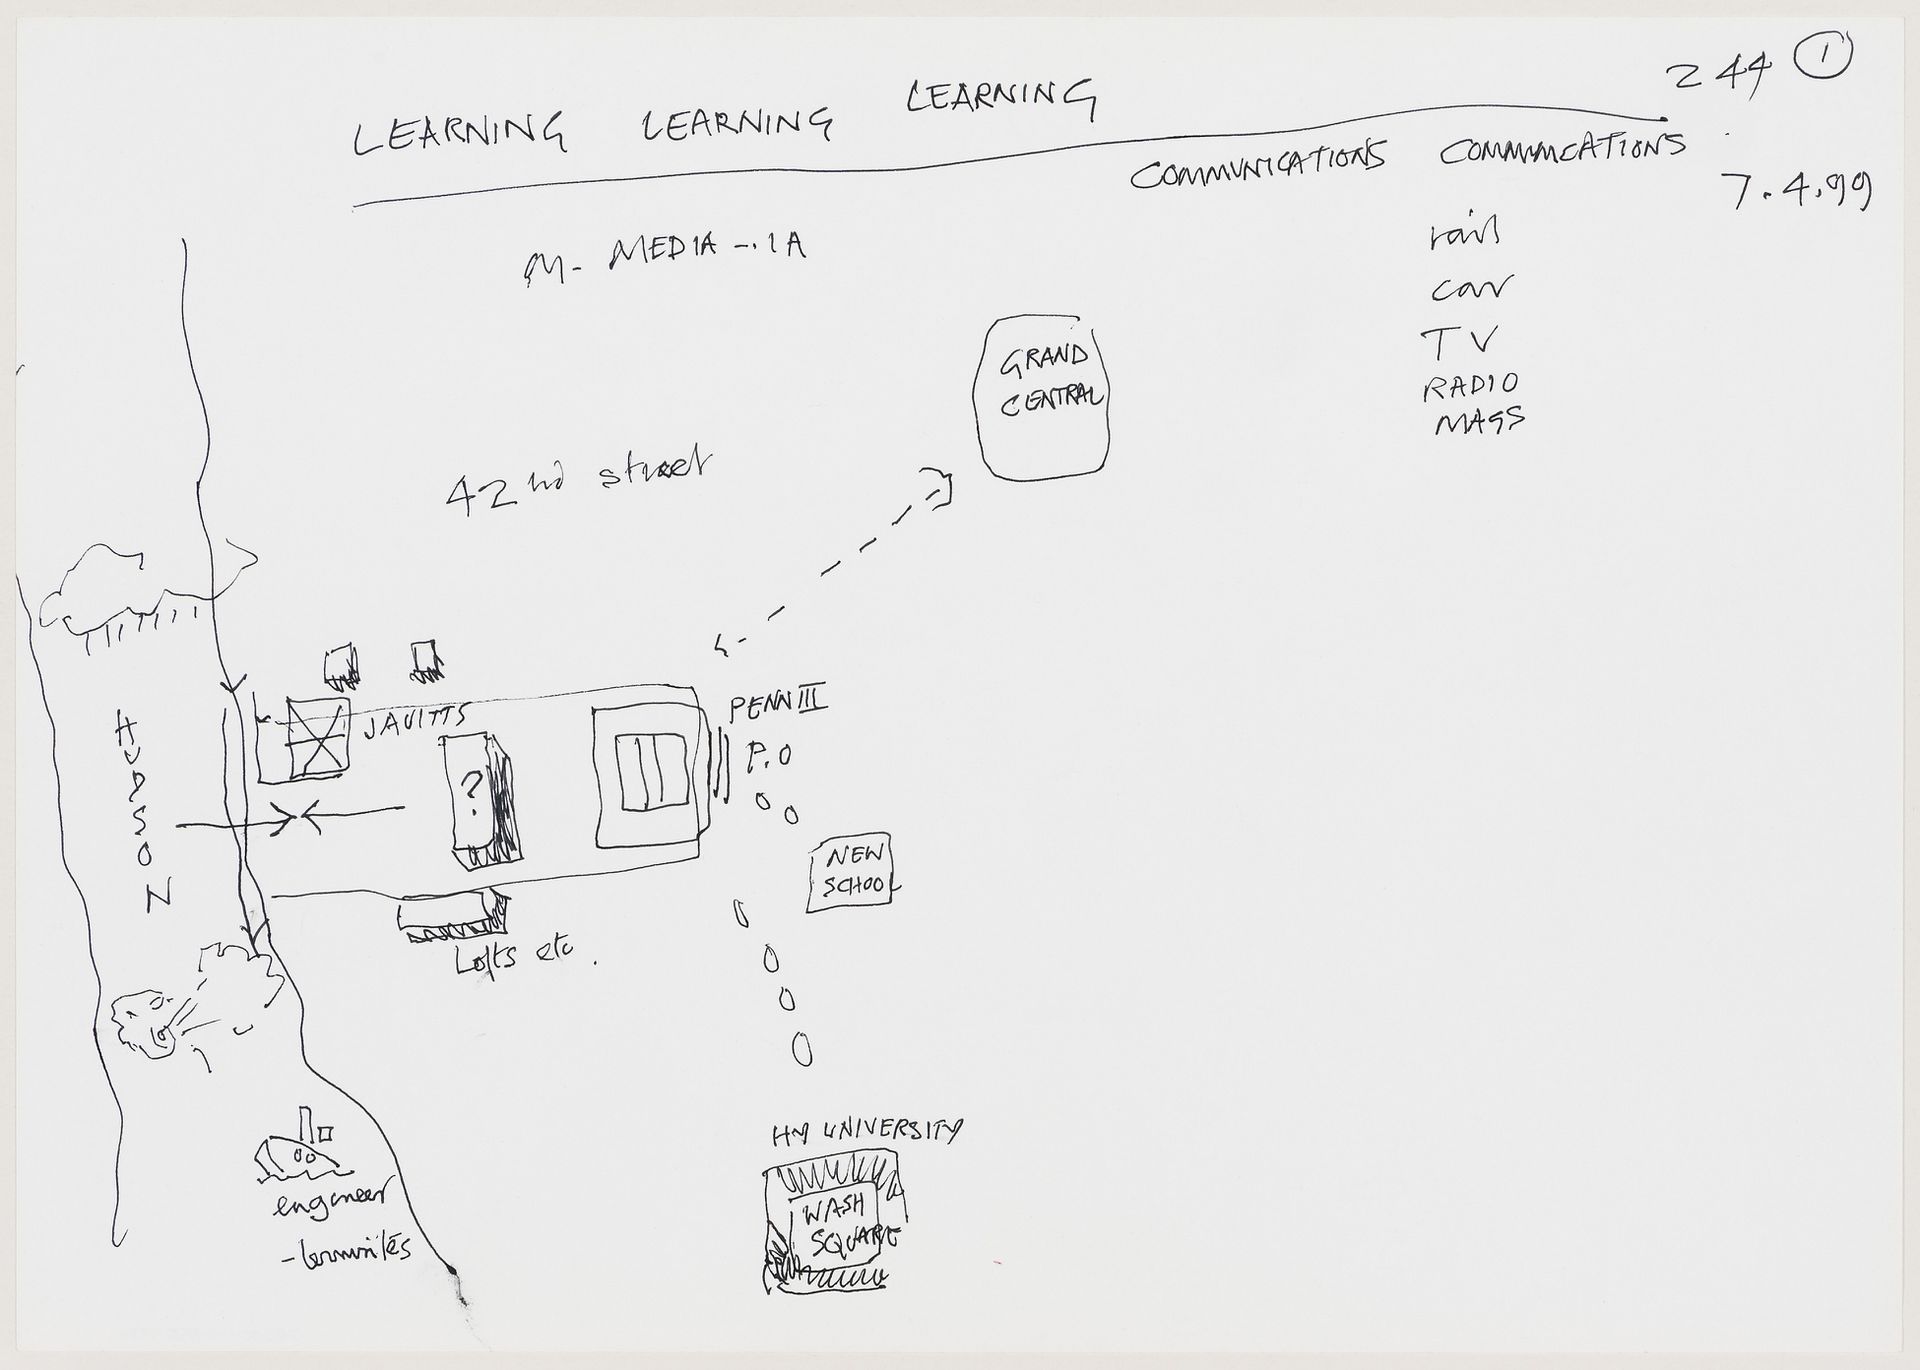 244 1
LEARNING LEARNING LEARNING
COMMUNICATIONS COMMUNICATIONS
7.4.99
M- MEDIA -. 1A
rail
car
TV
RADIO
MAGS
GRAND
CENTRAL
42nd street
HUDSON
JAVITTS
PENN III
P.O
?
NEW
SCHOOL
Lofts etc.
HY UNIVERSITY
WASH
SQUARE
engineer